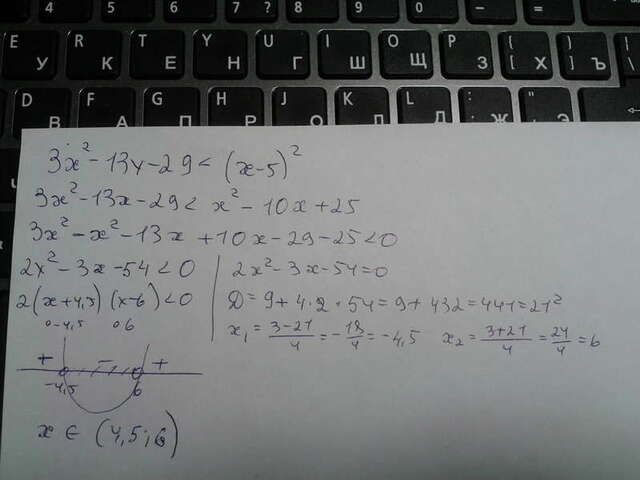 4 5 6 7 8 9 0 - =
E R T Y U I O P [ ]
У К Е Н Г Ш Щ З Х Ъ
D F G H J K L : "
В А П Р О Л Д Ж Э
3x² - 13x - 29 < (x-5)²
3x² - 13x - 29 < x² - 10x + 25
3x² - x² - 13x + 10x - 29 - 25 < 0
2x² - 3x - 54 < 0
2(x+4,5)(x-6) < 0
0-4,5 06
+ - +
-4,5 6
x ∈ (4,5; 6)
2x² - 3x - 54 = 0
D = 9 + 4·2·54 = 9 + 432 = 441 = 21²
x₁ = (3-21)/4 = -18/4 = -4,5 x₂ = (3+21)/4 = 24/4 = 6